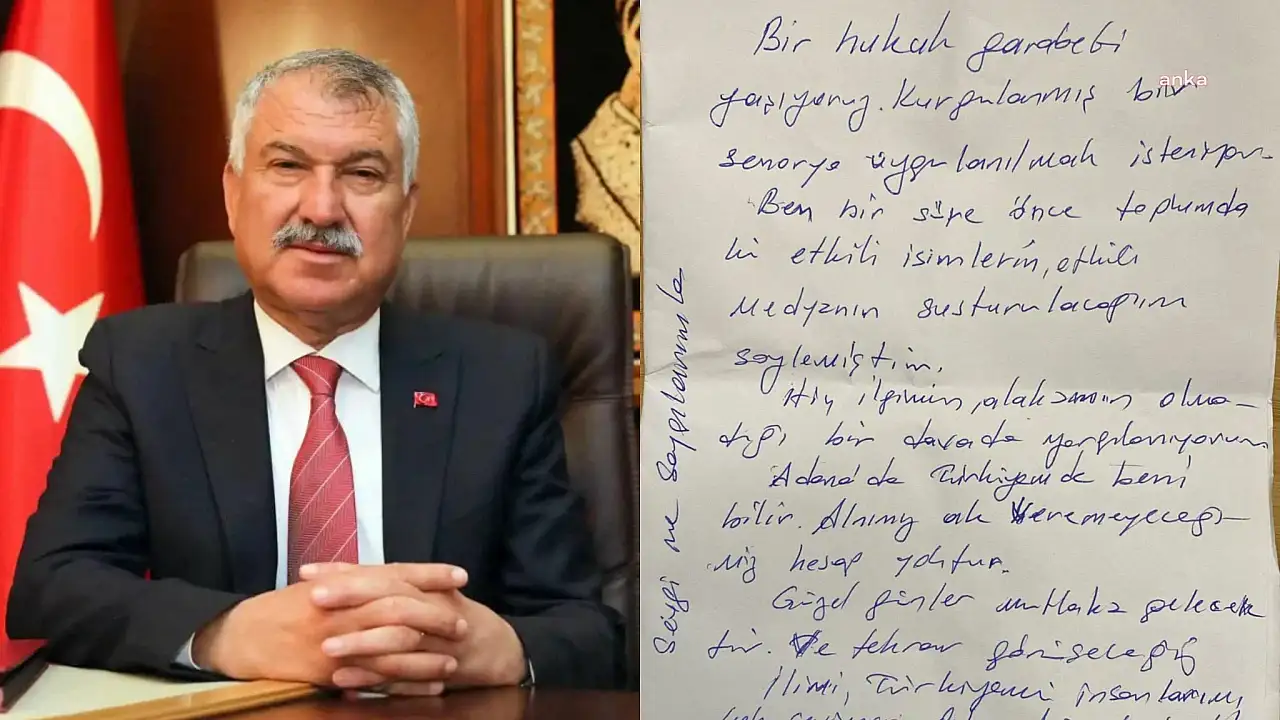 Bir hukuk garabeti
anka
yaşıyoruz. Kurgulanmış bir
senaryo uygulanılmak isteniyor
Ben bir süre önce toplumda
ki etkili isimlerin, etkili
Medyanın susturulacağını
söylemiştim.
Hiç ilgimin, alakamın olma-
dığı bir davada yargılanıyorum
Adana'da Türkiyemde beni
bilir. Alnımız ak Veremeyeceği-
miz hesap yoktur.
Güzel günler mutlaka gelecek
tir. Ve tekrar görüşeceğiz
İlimi, Türkiyemi insanlarımı
Sevgi ve Saygılarımla